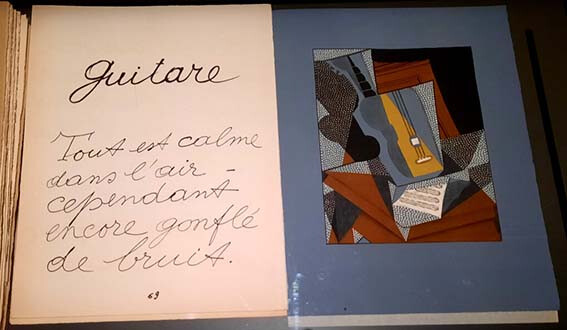 guitare
Tout est calme
dans l'air -
cependant
encore gonflé
de bruit.
69